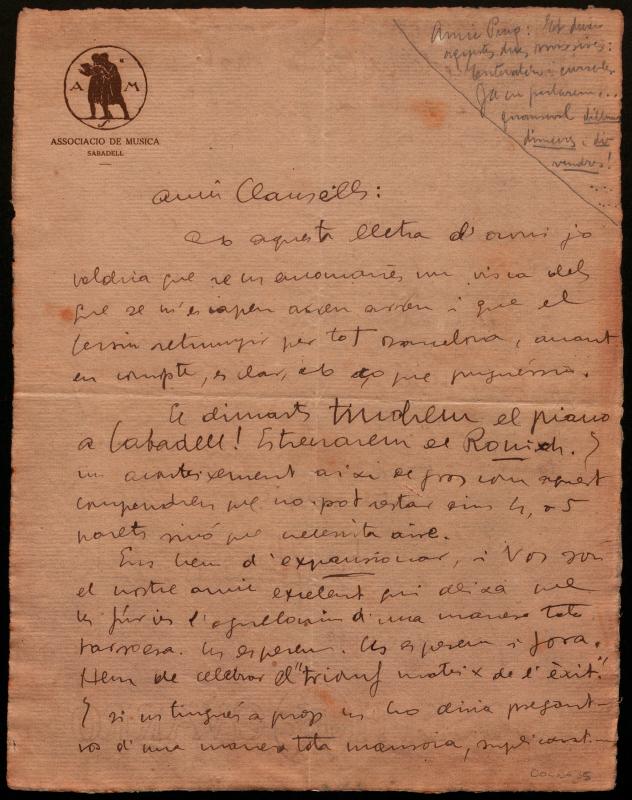 A M
S
ASSOCIACIO DE MUSICA
SABADELL
Amic Puig:
Ja en parlarem...
dilluns
dimecres i di-
vendres!
....
amic Clausells:
Ab aquesta lletra d'avui jo
voldria que se us encomanés un visca dels
que se m'escapen arreu arreu i que el
fessin retrunyir per tot Barcelona, anant
en compte, es clar, ab ço que
El dimarts tindrem el piano
a Sabadell! Estrenarem el Rönisch. I
un aconteixement aixi de gros com aquest
compendreu que no pot restar eins 4, o 5
parets sinó que necessita aire.
Ens hem d'expansionar, i Vos sou
el nostre amic excelent qui deixà que
les fúries d'una manera tota
Us esperem. Us esperem i fora.
Hem de celebrar el "triomf mateix de l'èxit".
I si us tingués a prop us ho diria pregant-
vos d'una manera tota suplicant-